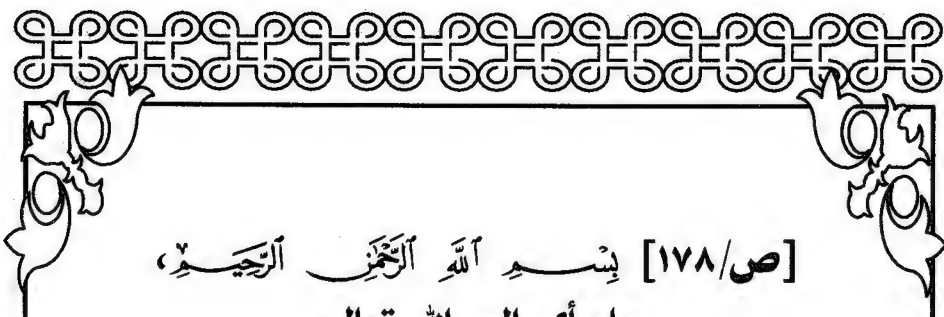 [ص/١٧٨] بِسْمِ ٱللَّهِ ٱلرَّحْمَٰنِ ٱلرَّحِيمِ،